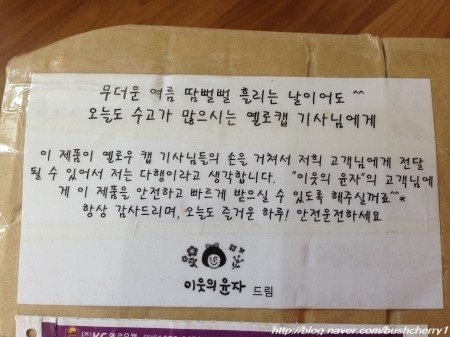 무더운 여름 땀뻘뻘 흘리는 날이어도 ^^
오늘도 수고가 많으시는 옐로캡 기사님에게
이 제품이 옐로우 캡 기사님들의 손을 거쳐서 저희 고객님에게 전달
될 수 있어서 저는 다행이라고 생각합니다. "이웃의 윤자"의 고객님에
게 이 제품을 안전하고 빠르게 받으실 수 있도록 해주실꺼죠^^*
항상 감사드리며, 오늘도 즐거운 하루! 안전운전하세요
이웃의윤자 드림
http://blog.naver.com/bushcherry1